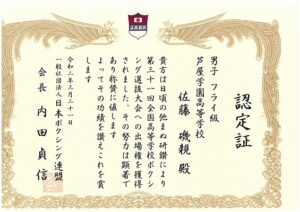 JABF
認定証
男子 フライ級
芦屋学園高等学校
佐藤 磯親 殿
貴方は日頃の弛まぬ研鑽により
第三十一回全国高等学校ボクシ
ング選抜大会への出場権を獲得
されました。その努力は顕著で
あり称賛に値します
よってその功績を讃えこれを賞
します
令和二年三月二十一日
一般社団法人日本ボクシング連盟
会長 内田貞信